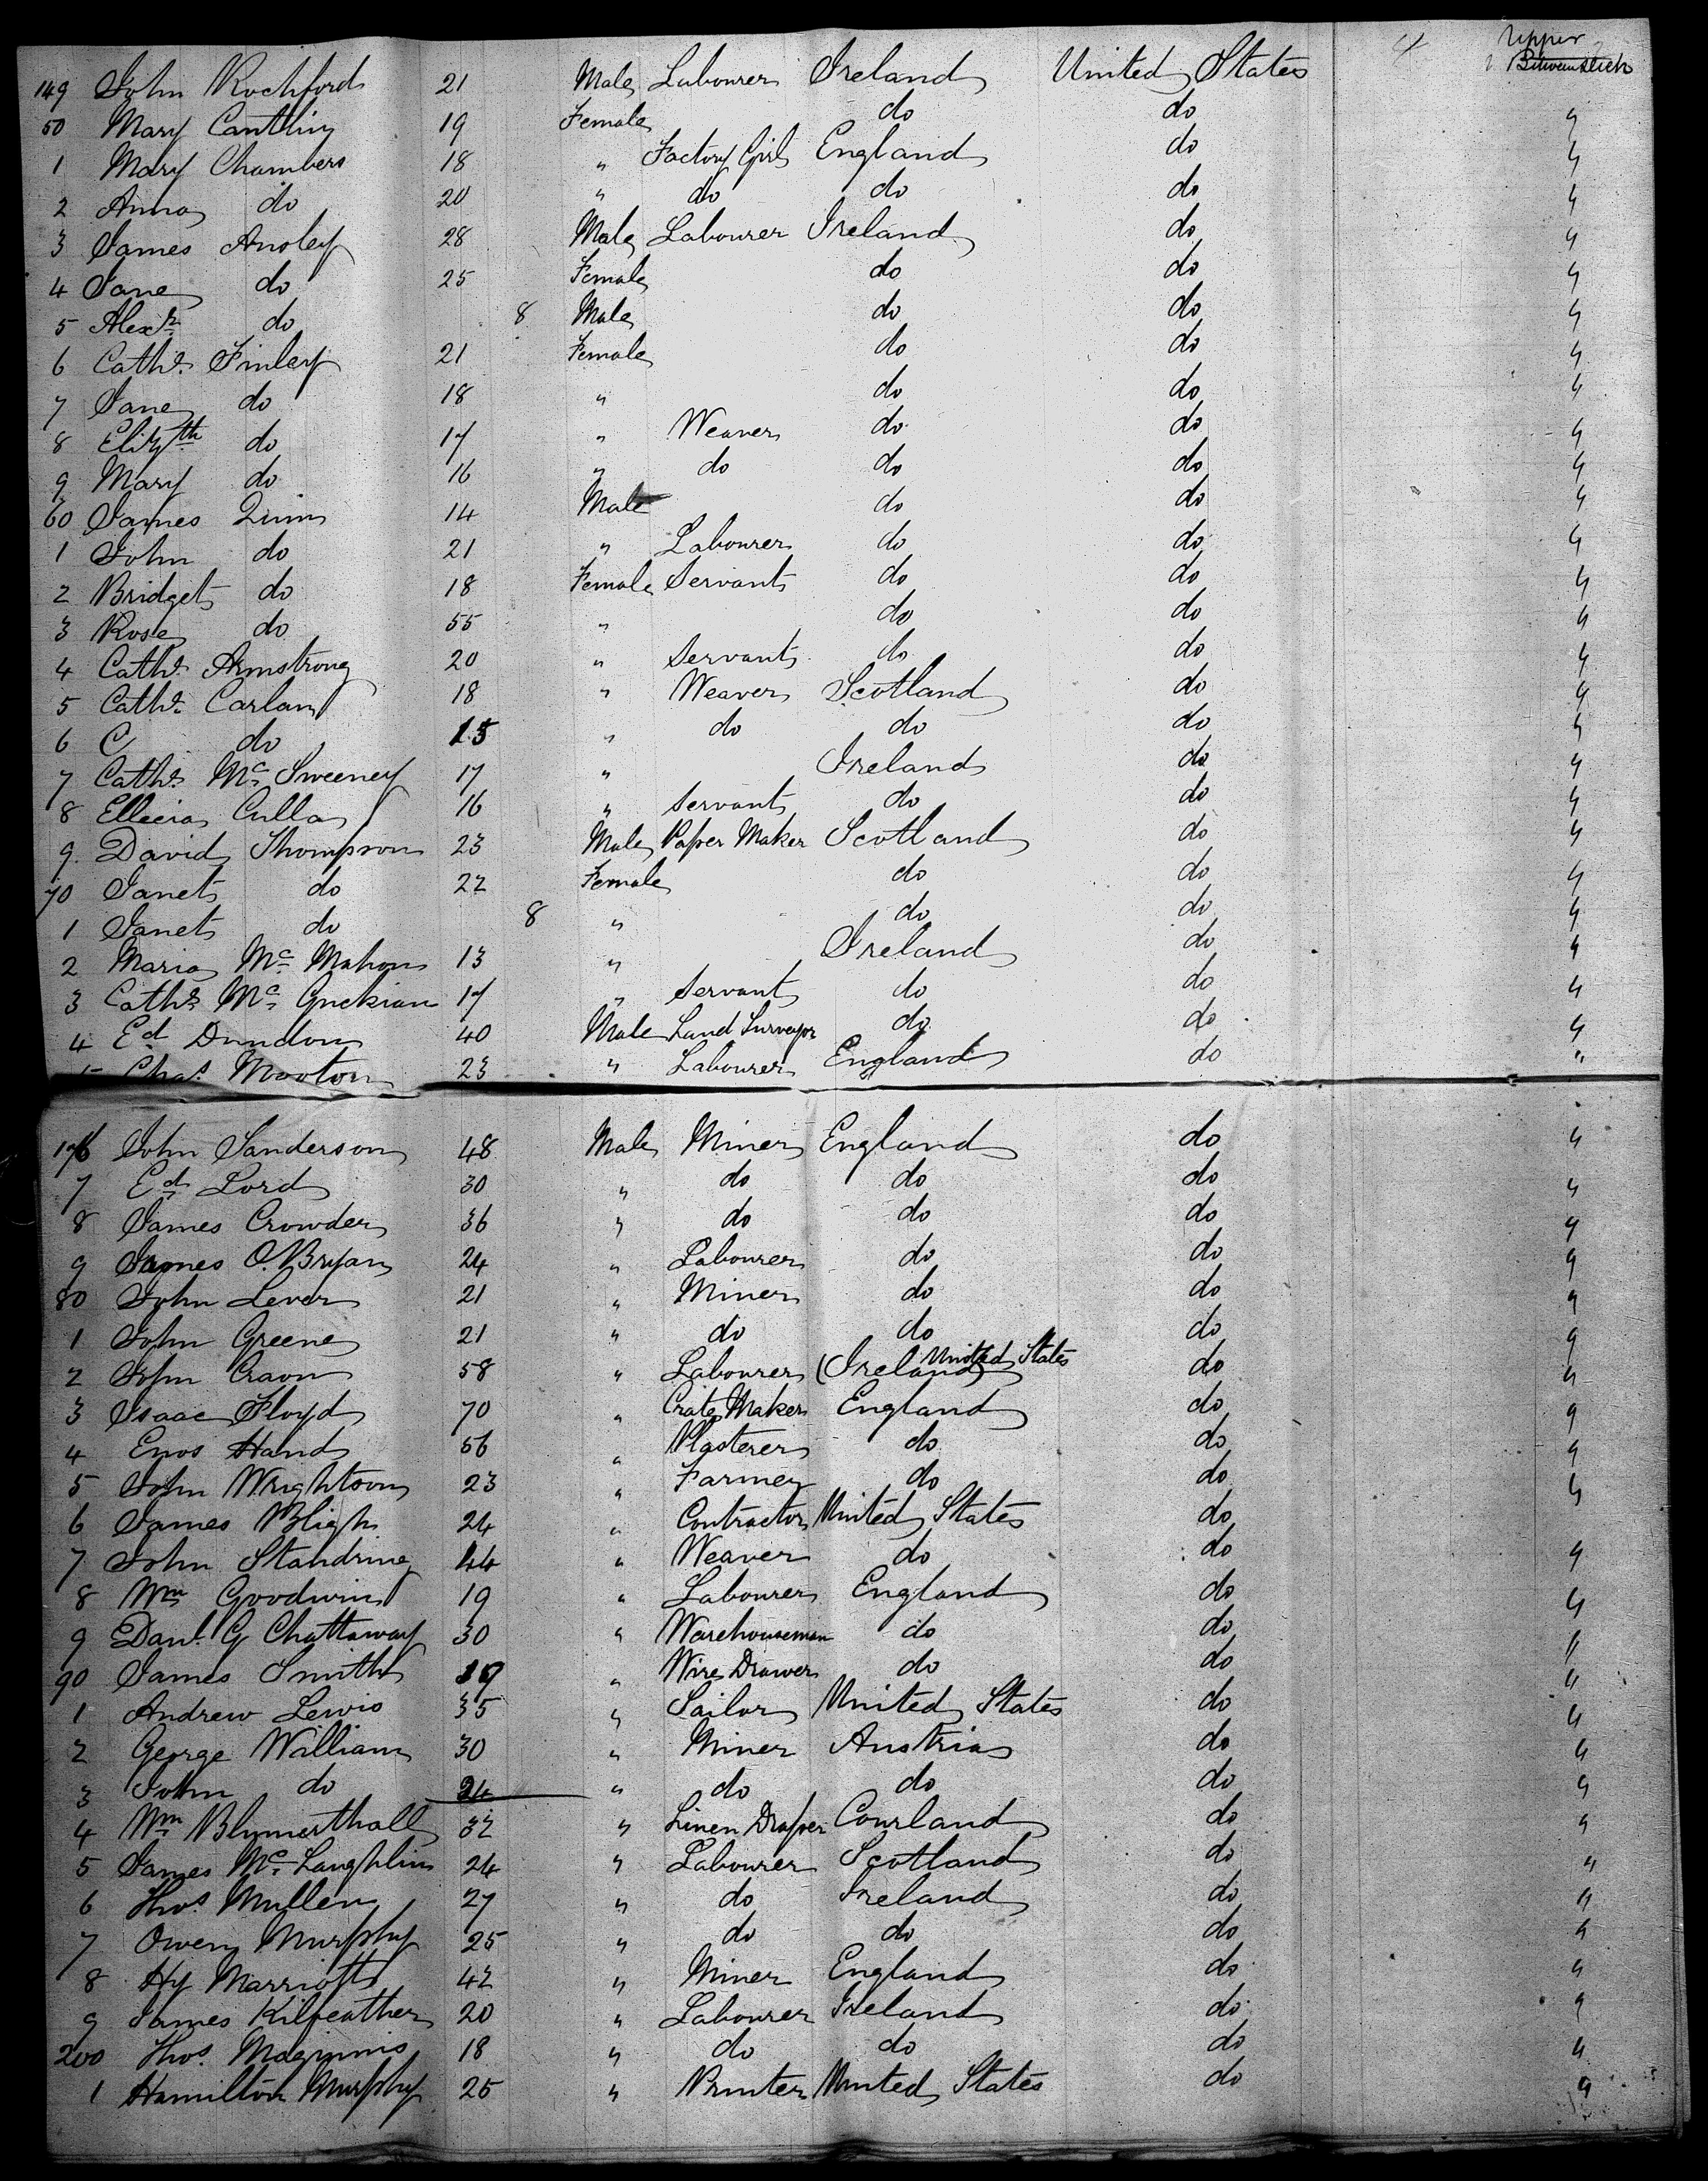 Upper
149 John Rochford 21 Male Labourer Ireland United States Between Deck
50 Mary Cantlin 19 Female do do "
1 Mary Chambers 18 " Factory Girl England do "
2 Anna do 20 " do do do "
3 James Ansley 28 Male Labourer Ireland do "
4 Jane do 25 Female do do "
5 Alexr do 8 Male do do "
6 Cathe Finley 21 Female do do "
7 Jane do 18 " do do "
8 Elizth do 17 " Weaver do do "
9 Mary do 16 " do do do "
60 James Quinn 14 Male do do "
1 John do 21 " Labourer do do "
2 Bridget do 18 Female Servant do do "
3 Rose do 55 " do do "
4 Cathe Armstrong 20 " Servant do do "
5 Cathe Carlan 18 " Weaver Scotland do "
6 C do 15 " do do do "
7 Cathe Mc Sweeney 17 " Ireland do "
8 Ellecia Culla 16 " Servant do do "
9 David Thompson 23 Male Paper Maker Scotland do "
70 Janet do 22 Female do do "
1 Janet do 8 " do do "
2 Maria Mc Mahon 13 " Ireland do "
3 Cathe Mc Guckian 17 " Servant do do "
4 Ed Dundon 40 Male Land Surveyor do do "
5 Chas Mooton 23 " Labourer England do "
176 John Sanderson 48 Male Miner England do "
7 Ed Lord 30 " do do do "
8 James Crowder 36 " do do do "
9 James O.Bryan 24 " Labourer do do "
80 John Lever 21 " Miner do do "
1 John Greene 21 " do do do "
2 John Craon 58 " Labourer (Ireland) United States do "
3 Isaac Floyd 70 " Crate Maker England do "
4 Enos Hand 56 " Plasterer do do "
5 John Wrightson 23 " Farmer do do "
6 James Bligh 24 " Contractor United States do
7 John Standring 44 " Weaver do do "
8 Wm Goodwin 19 " Labourer England do "
9 Danl G Chattaway 30 " Warehouseman do do "
90 James Smith 19 " Wire Drawer do do "
1 Andrew Lewis 35 " Sailor United States do "
2 George William 30 " Miner Austria do "
3 John do 24 " do do do "
4 Wm Blumerthall 32 " Linen Draper Courland do "
5 James Mc Laughlin 24 " Labourer Scotland do "
6 Thos Mullen 27 " do Ireland do "
7 Owen Murphy 25 " do do do "
8 Hy Marriott 42 " Miner England do "
9 James Kilfeather 20 " Labourer Ireland do "
200 Thos Maginnis 18 " do do do "
1 Hamilton Murphy 25 " Printer United States do "